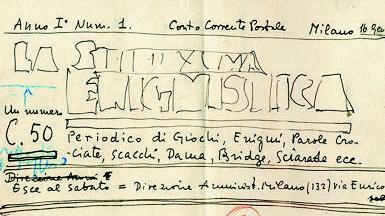 Anno I° Num. 1. Conto Corrente Postale Milano 16 Gen
LA SETTIMANA
ENIGMISTICA
Un numero
C. 50
Periodico di Giochi, Enigmi, Parole Cro-
ciate, Scacchi, Dama, Bridge, Sciarade ecc.
Direzione
Esce al sabato = Direzione Amminist. Milano (132) via Enrico